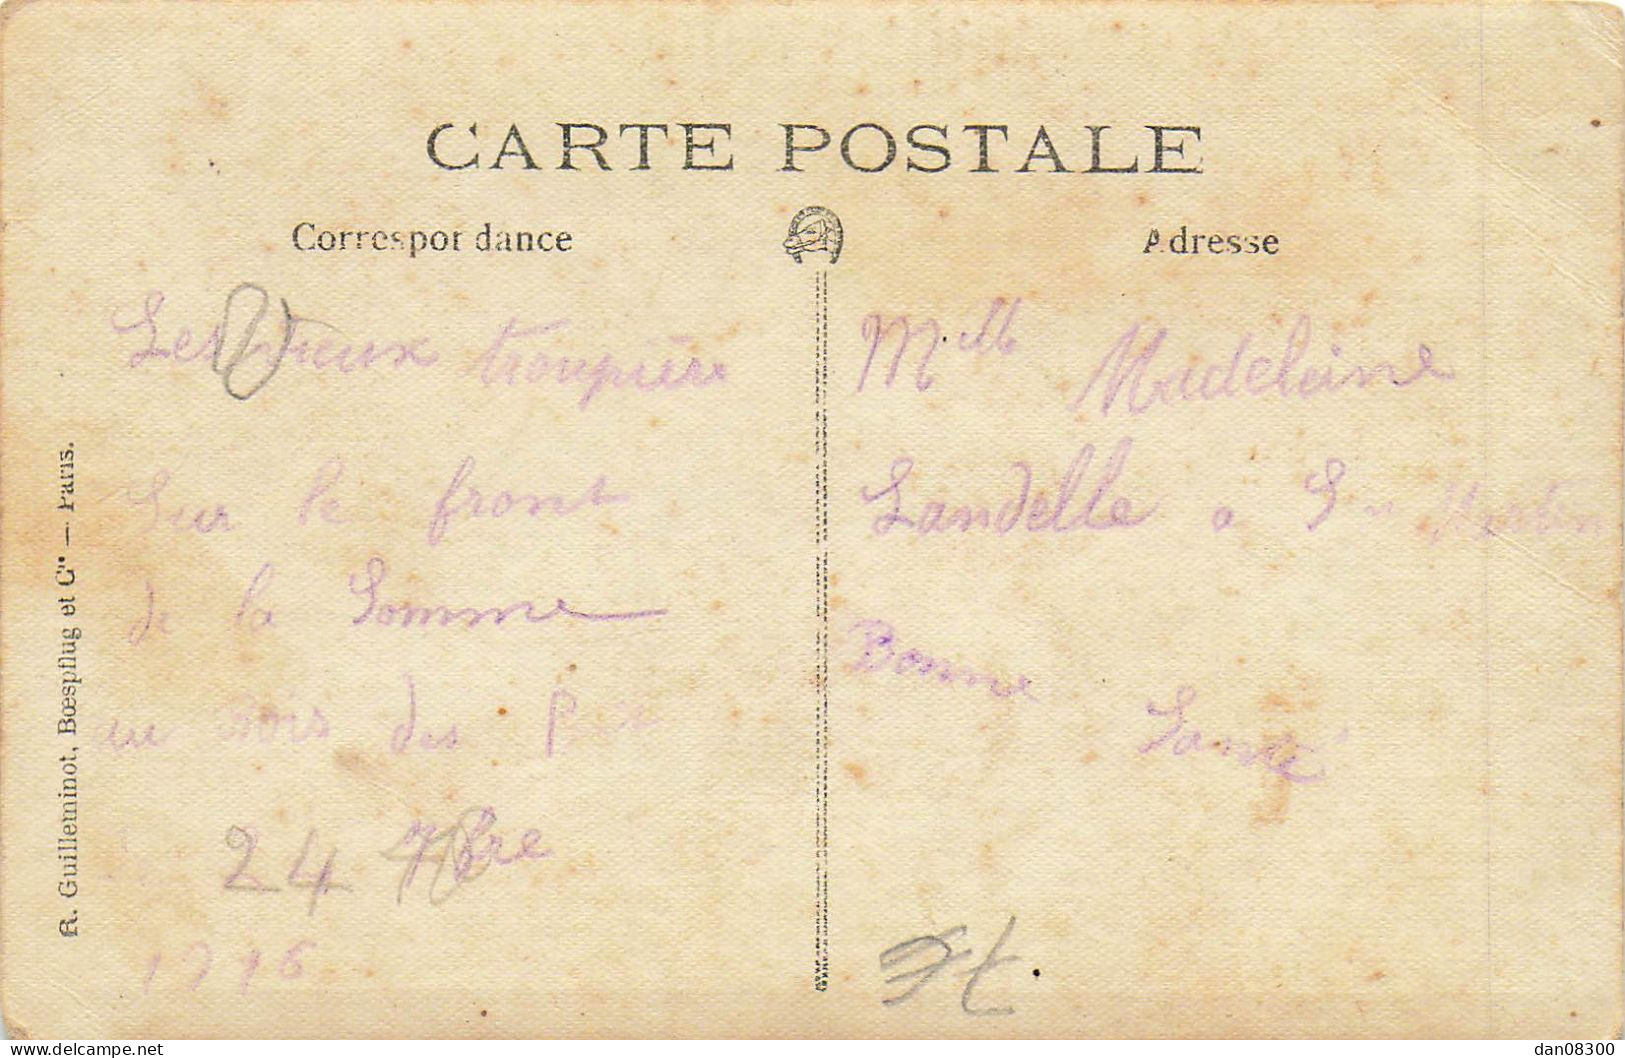 CARTE POSTALE
Correspondance
Adresse
Les vieux troupiers
Sur le front
de la Somme
au Bois des
24 7bre
1916
Mlle Madeleine
Landelle a Martin
Bonne
Santé
R. Guilleminot, Bœspflug et Cie — Paris.
delcampe.net
dan08300